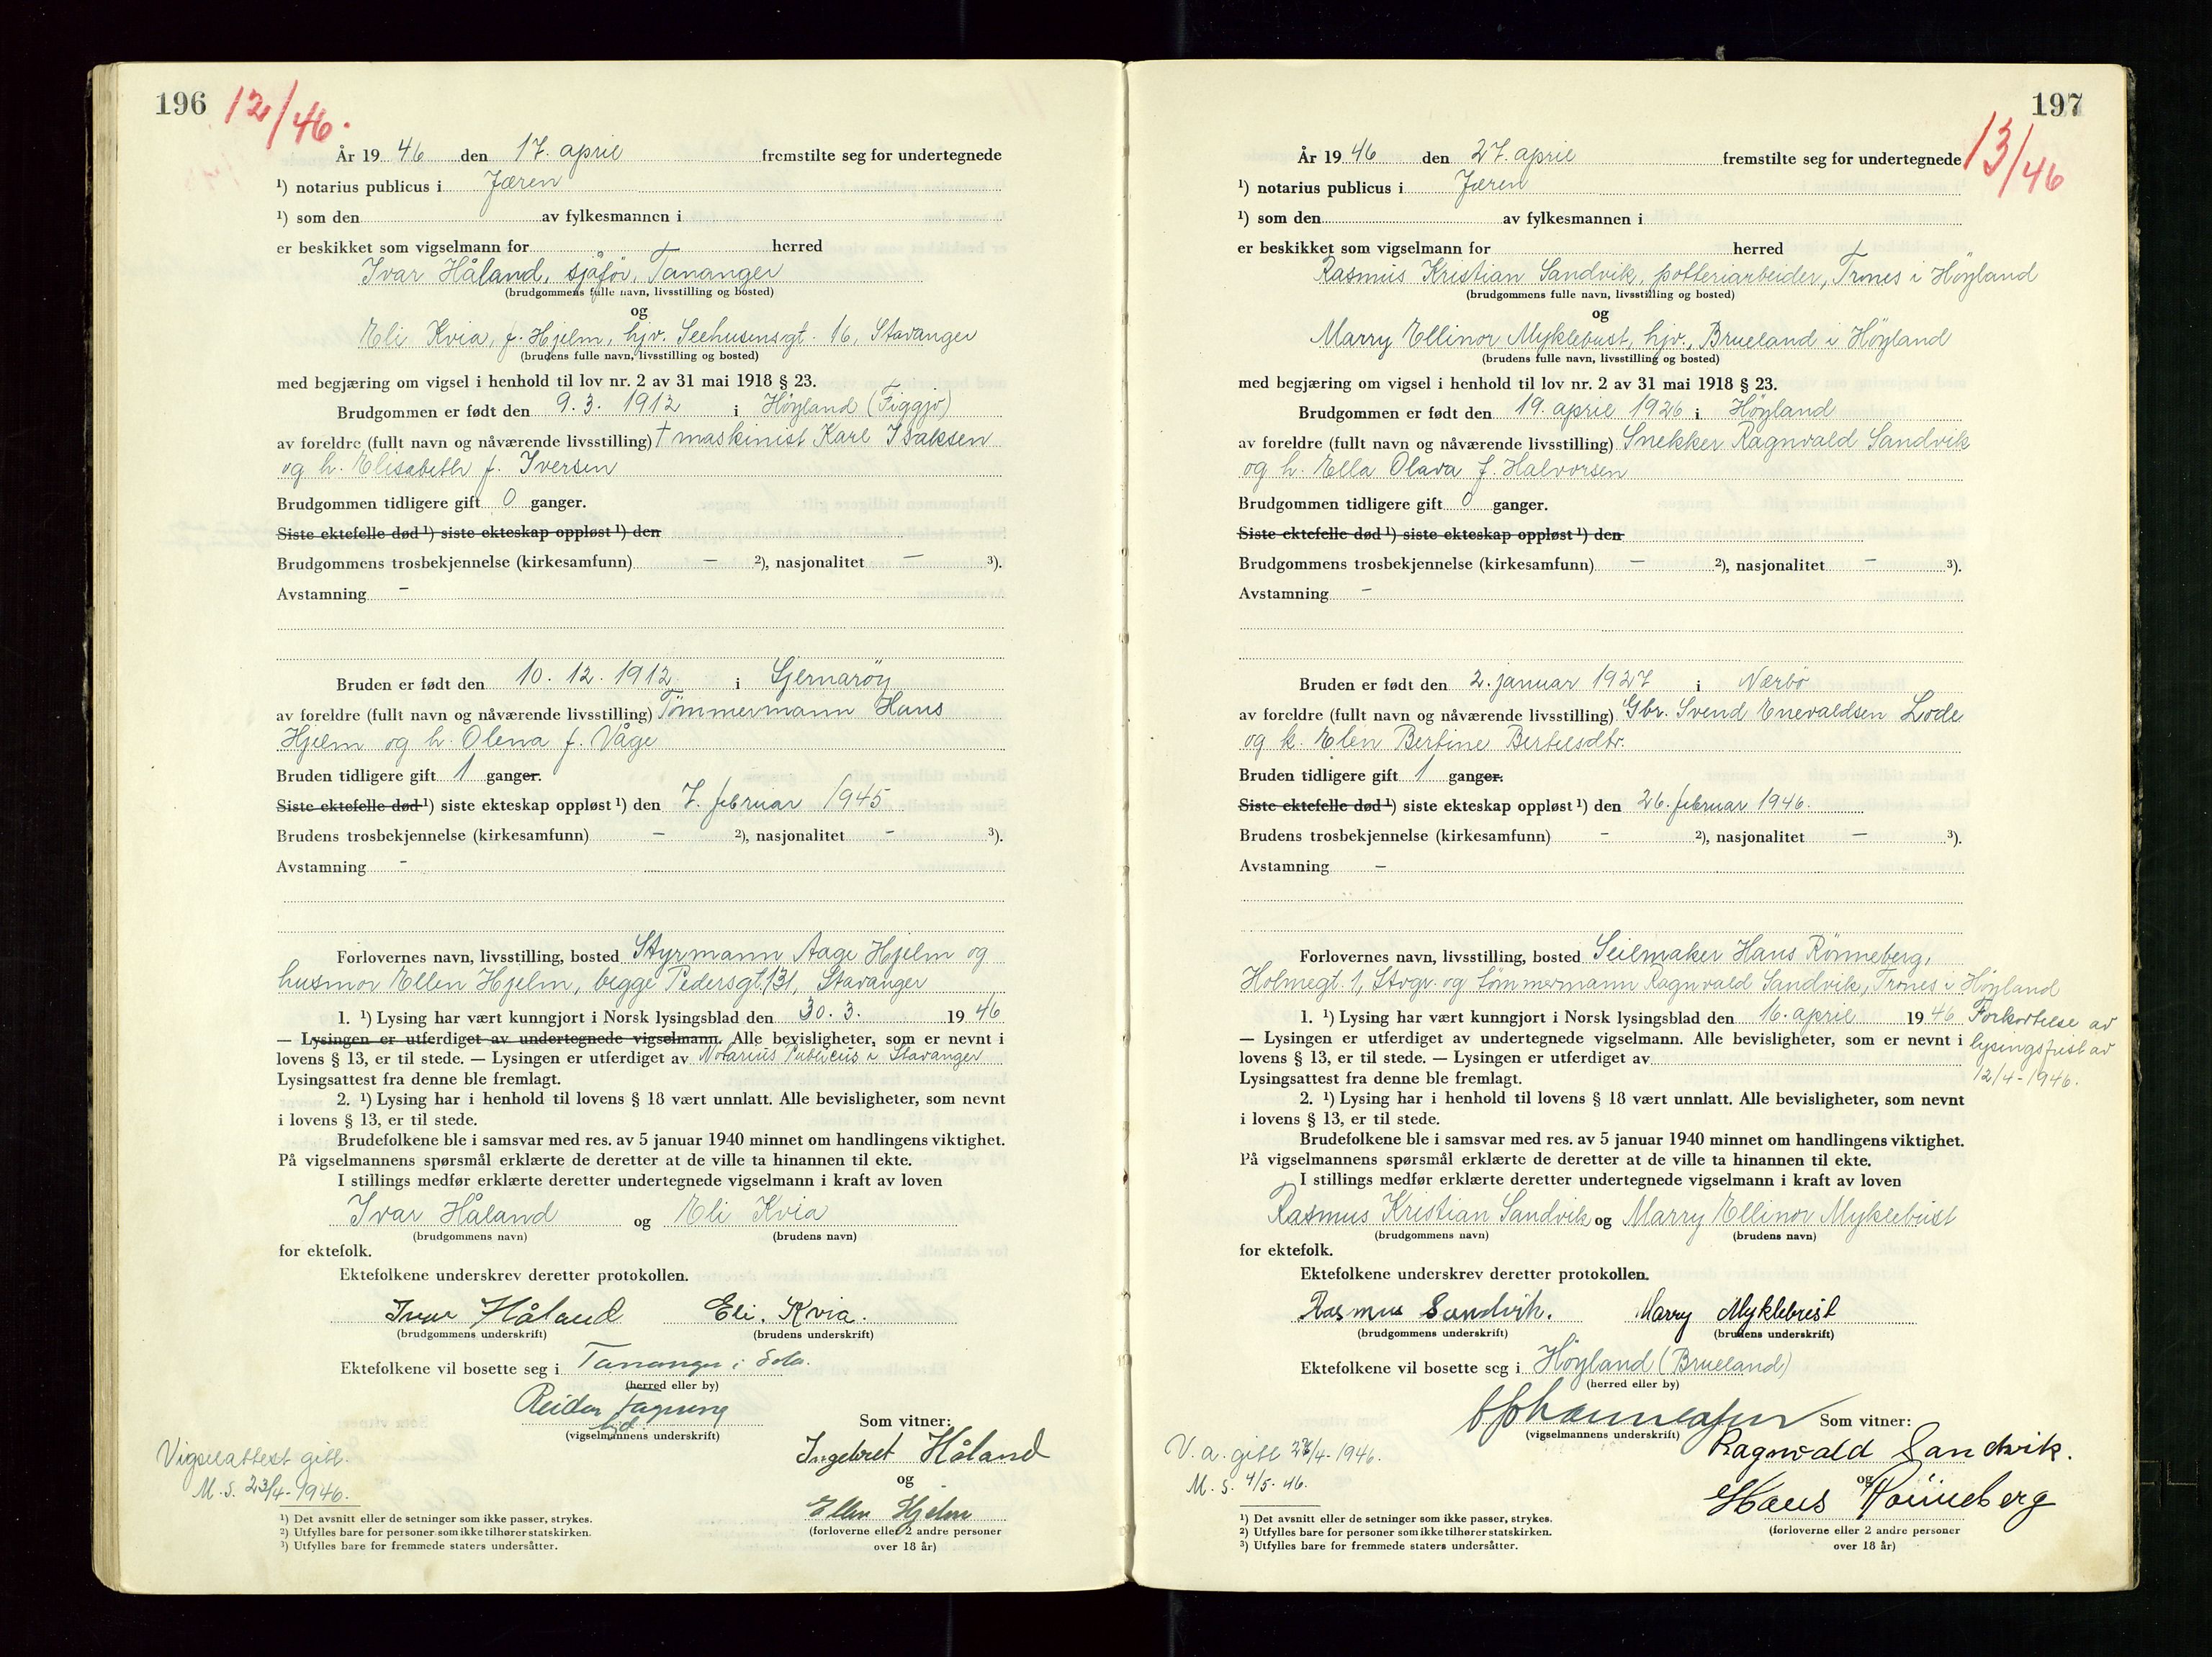 196 12/46.
År 19 46 den 17. april fremstilte seg for undertegnede
¹) notarius publicus i Jæren
¹) som den av fylkesmannen i
er beskikket som vigselmann for herred
Ivar Håland, sjåfør, Tananger
(brudgommens fulle navn, livsstilling og bosted)
og
Eli Kvia, f. Hjelm, hjv. Seehusensgt. 16, Stavanger
(brudens fulle navn, livsstilling og bosted)
med begjæring om vigsel i henhold til lov nr. 2 av 31 mai 1918 § 23.
Brudgommen er født den 9. 3. 1912 i Höyland (Figgjo)
av foreldre (fullt navn og nåværende livsstilling) † maskinist Karl Isaksen
og h. Elisabeth f. Iversen
Brudgommen tidligere gift 0 ganger.
Siste ektefelle død ¹) siste ekteskap oppløst ¹) den
Brudgommens trosbekjennelse (kirkesamfunn) – ²), nasjonalitet – ³).
Avstamning –
Bruden er født den 10. 12. 1912 i Sjernaröy
av foreldre (fullt navn og nåværende livsstilling) Tömmermann Hans
Hjelm og h. Olena f. Våge
Bruden tidligere gift 1 ganger.
Siste ektefelle død ¹) siste ekteskap oppløst ¹) den 7. februar 1945
Brudens trosbekjennelse (kirkesamfunn) – ²), nasjonalitet – ³).
Avstamning –
Forlovernes navn, livsstilling, bosted Styrmann Aage Hjelm og
husmor Ellen Hjelm, begge Pedersgt. 131, Stavanger
1. ¹) Lysing har vært kunngjort i Norsk lysingsblad den 30. 3. 19 46
— Lysingen er utferdiget av undertegnede vigselmann. Alle bevisligheter, som er nevnt i
lovens § 13, er til stede. — Lysingen er utferdiget av Notarius Publicus i Stavanger
Lysingsattest fra denne ble fremlagt.
2. ¹) Lysing har i henhold til lovens § 18 vært unnlatt. Alle bevisligheter, som nevnt
i lovens § 13, er til stede.
Brudefolkene ble i samsvar med res. av 5 januar 1940 minnet om handlingens viktighet.
På vigselmannens spørsmål erklærte de deretter at de ville ta hinannen til ekte.
I stillings medfør erklærte deretter undertegnede vigselmann i kraft av loven
Ivar Håland og Eli Kvia
(brudgommens navn) (brudens navn)
for ektefolk.
Ektefolkene underskrev deretter protokollen.
Ivar Håland Eli. Kvia.
(brudgommens underskrift) (brudens underskrift)
Ektefolkene vil bosette seg i Tananger i Sola.
(herred eller by)
Reidar
(vigselmannens underskrift)
Som vitner:
Ingebret Håland
og
Ellen Hjelm
(forloverne eller 2 andre personer
over 18 år)
Vigselattest gitt.
M. S. 23/4-1946.
¹) Det avsnitt eller de setninger som ikke passer, strykes.
²) Utfylles bare for personer som ikke tilhører statskirken.
³) Utfylles bare for fremmede staters undersåtter.
197
13/46
År 19 46 den 27. april fremstilte seg for undertegnede
¹) notarius publicus i Jæren
¹) som den av fylkesmannen i
er beskikket som vigselmann for herred
Rasmus Kristian Sandvik, potteriarbeider, Trones i Höyland
(brudgommens fulle navn, livsstilling og bosted)
og
Marry Ellinor Myklebust, hjv., Brueland i Höyland
(brudens fulle navn, livsstilling og bosted)
med begjæring om vigsel i henhold til lov nr. 2 av 31 mai 1918 § 23.
Brudgommen er født den 19. april 1926 i Höyland
av foreldre (fullt navn og nåværende livsstilling) Snekker Ragnvald Sandvik
og h. Ella Olava f. Halvorsen
Brudgommen tidligere gift 0 ganger.
Siste ektefelle død ¹) siste ekteskap oppløst ¹) den
Brudgommens trosbekjennelse (kirkesamfunn) – ²), nasjonalitet – ³).
Avstamning –
Bruden er født den 2. januar 1927 i Nærbö
av foreldre (fullt navn og nåværende livsstilling) Gbr. Svend Enevaldsen Lode
og h. Elen Bertine Bertelsdtr.
Bruden tidligere gift 1 ganger.
Siste ektefelle død ¹) siste ekteskap oppløst ¹) den 26. februar 1946.
Brudens trosbekjennelse (kirkesamfunn) – ²), nasjonalitet – ³).
Avstamning –
Forlovernes navn, livsstilling, bosted Seilmaker Hans Rönneberg,
Holmegt. 1, Stvgr. og tömmermann Ragnvald Sandvik, Trones i Höyland
1. ¹) Lysing har vært kunngjort i Norsk lysingsblad den 16. april 19 46
— Lysingen er utferdiget av undertegnede vigselmann. Alle bevisligheter, som er nevnt i
lovens § 13, er til stede. — Lysingen er utferdiget av
Forkortelse av
lysingsfrist av
12/4-1946.
Lysingsattest fra denne ble fremlagt.
2. ¹) Lysing har i henhold til lovens § 18 vært unnlatt. Alle bevisligheter, som nevnt
i lovens § 13, er til stede.
Brudefolkene ble i samsvar med res. av 5 januar 1940 minnet om handlingens viktighet.
På vigselmannens spørsmål erklærte de deretter at de ville ta hinannen til ekte.
I stillings medfør erklærte deretter undertegnede vigselmann i kraft av loven
Rasmus Kristian Sandvik og Marry Ellinor Myklebust
(brudgommens navn) (brudens navn)
for ektefolk.
Ektefolkene underskrev deretter protokollen.
Rasmus Sandvik. Marry Myklebust
(brudgommens underskrift) (brudens underskrift)
Ektefolkene vil bosette seg i Höyland (Brueland)
(herred eller by)
(vigselmannens underskrift)
Som vitner:
Ragnvald Sandvik.
og
Hans Rönneberg
(forloverne eller 2 andre personer
over 18 år)
V. a. gitt 27/4-1946.
M. S. 4/5-46.
¹) Det avsnitt eller de setninger som ikke passer, strykes.
²) Utfylles bare for personer som ikke tilhører statskirken.
³) Utfylles bare for fremmede staters undersåtter.